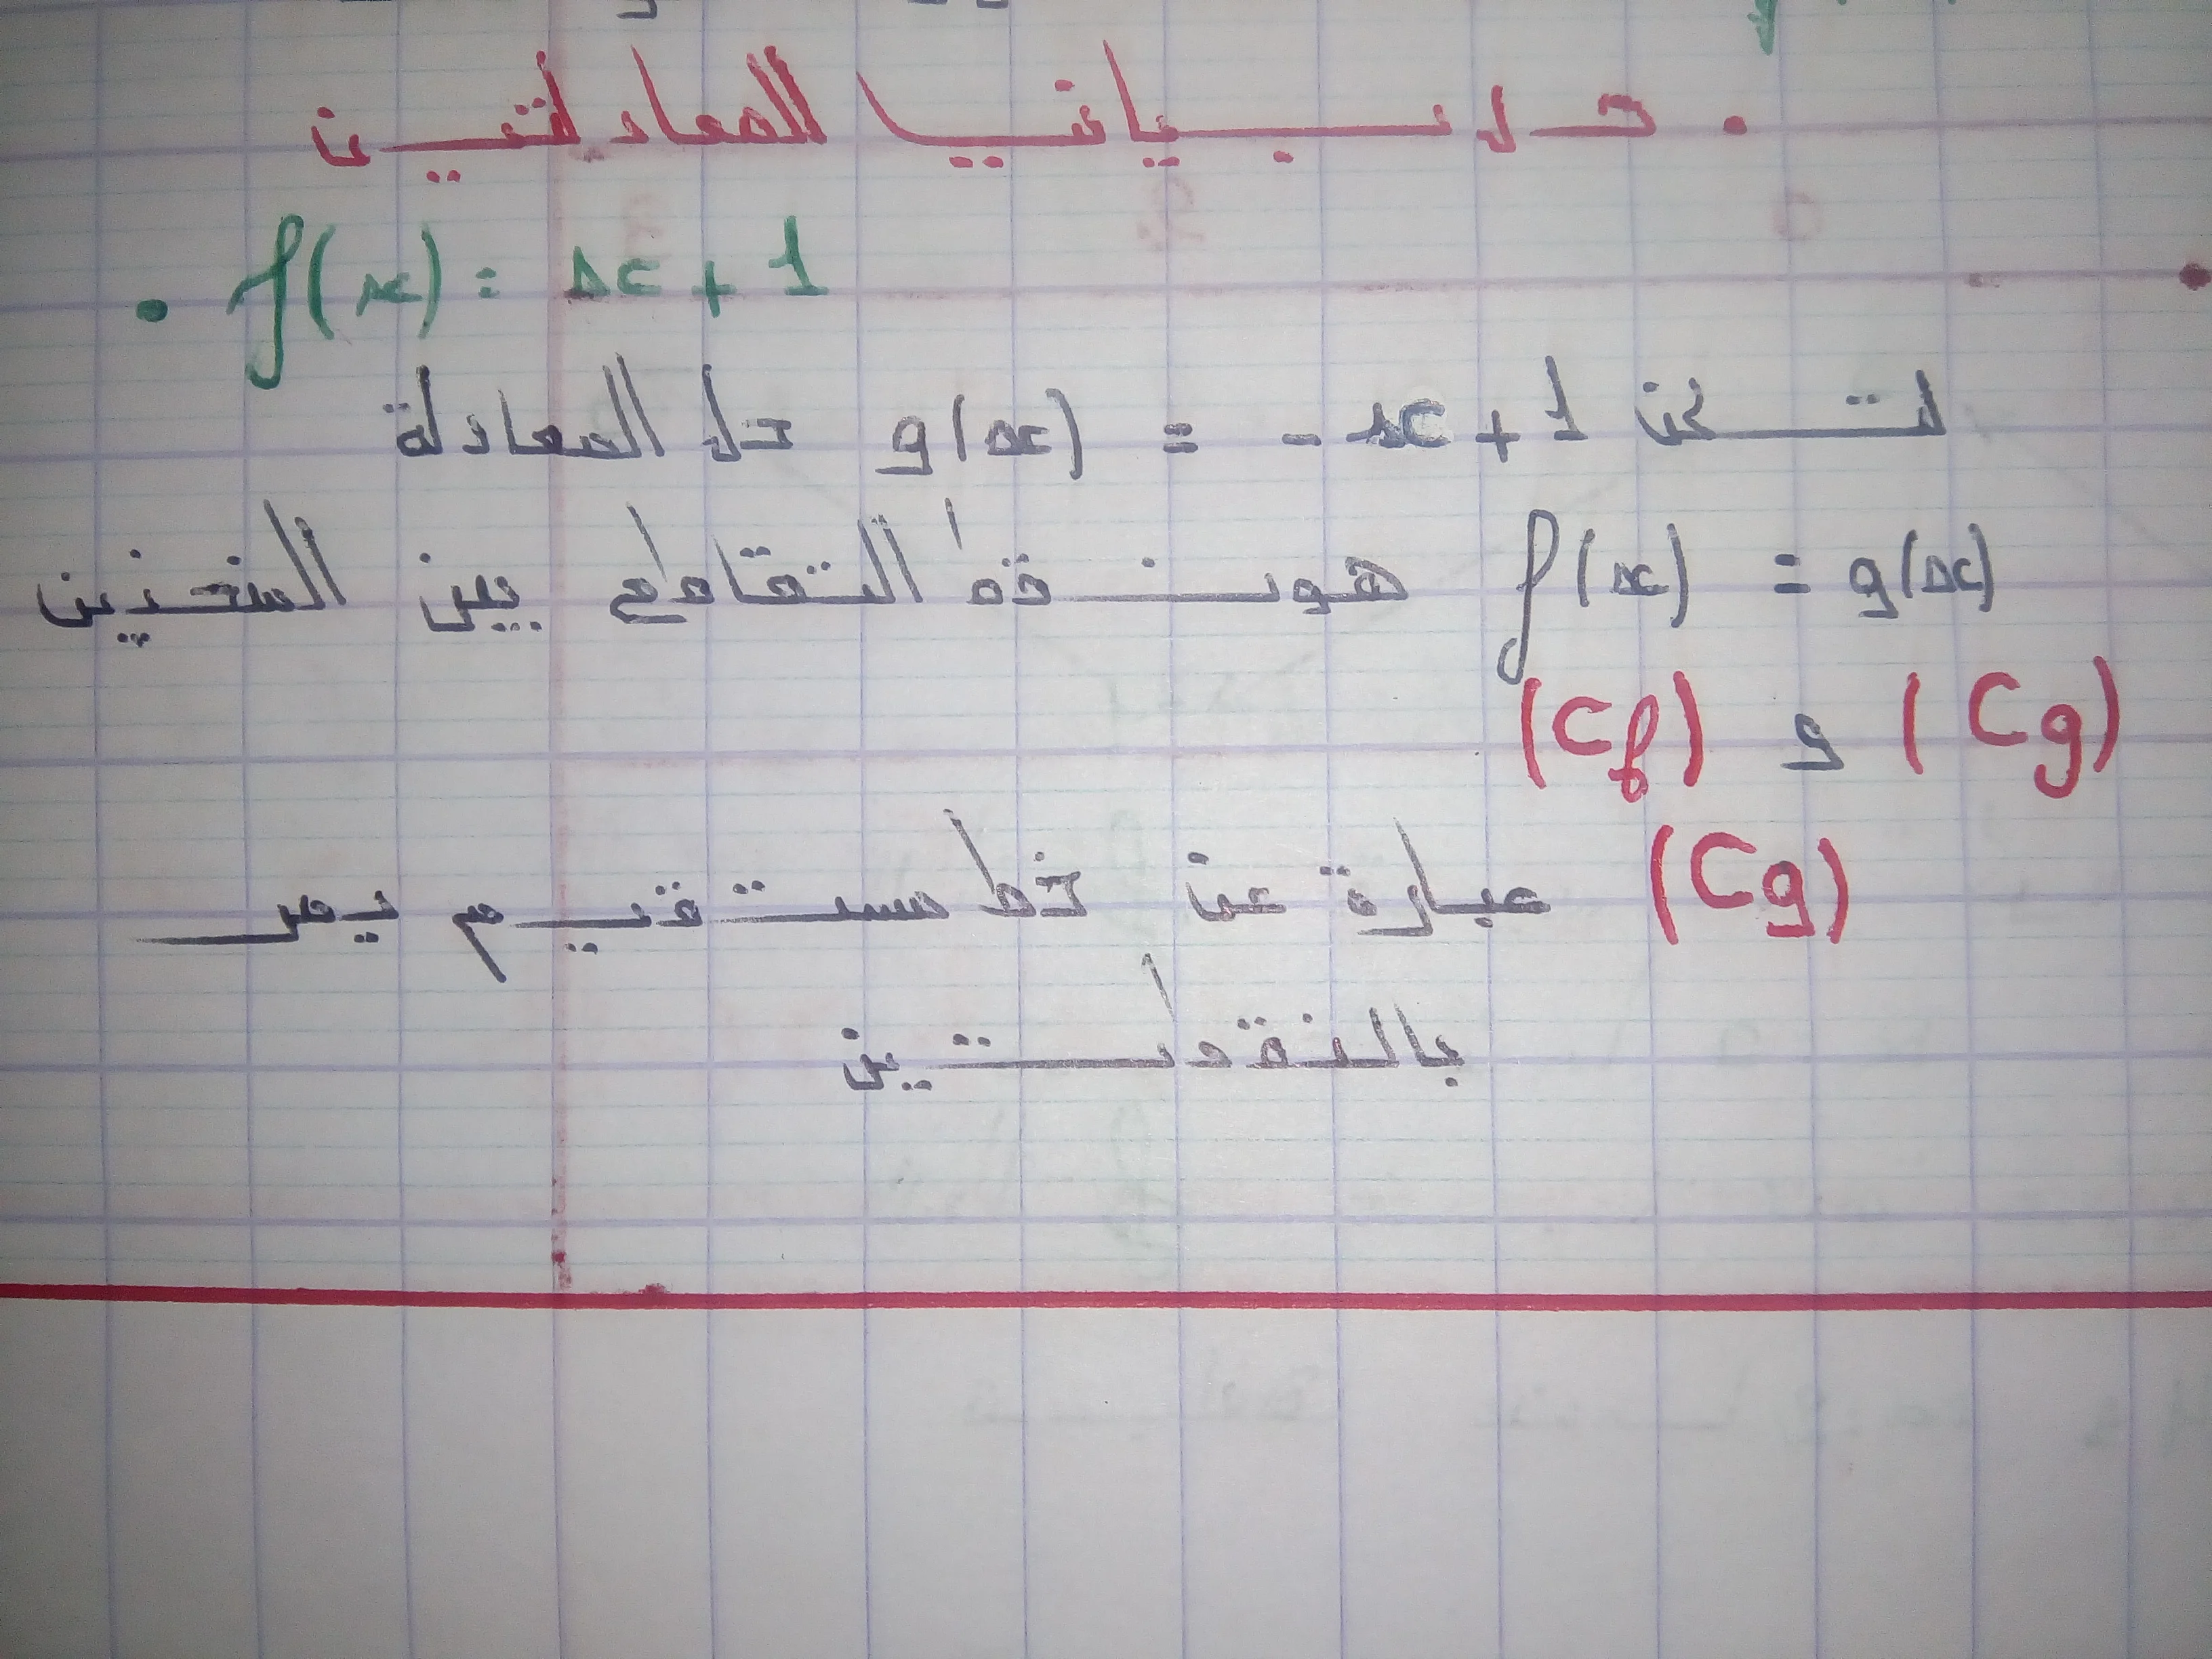 • حل بيانيا المعادلتين
• f(x) = x + 1
لتكن g(x) = -x + 1 حل المعادلة
f(x) = g(x) هو نقط التقاطع بين المنحنيين
(Cf) و (Cg)
(Cg) عبارة عن خط مستقيم يمر
بالنقطتين